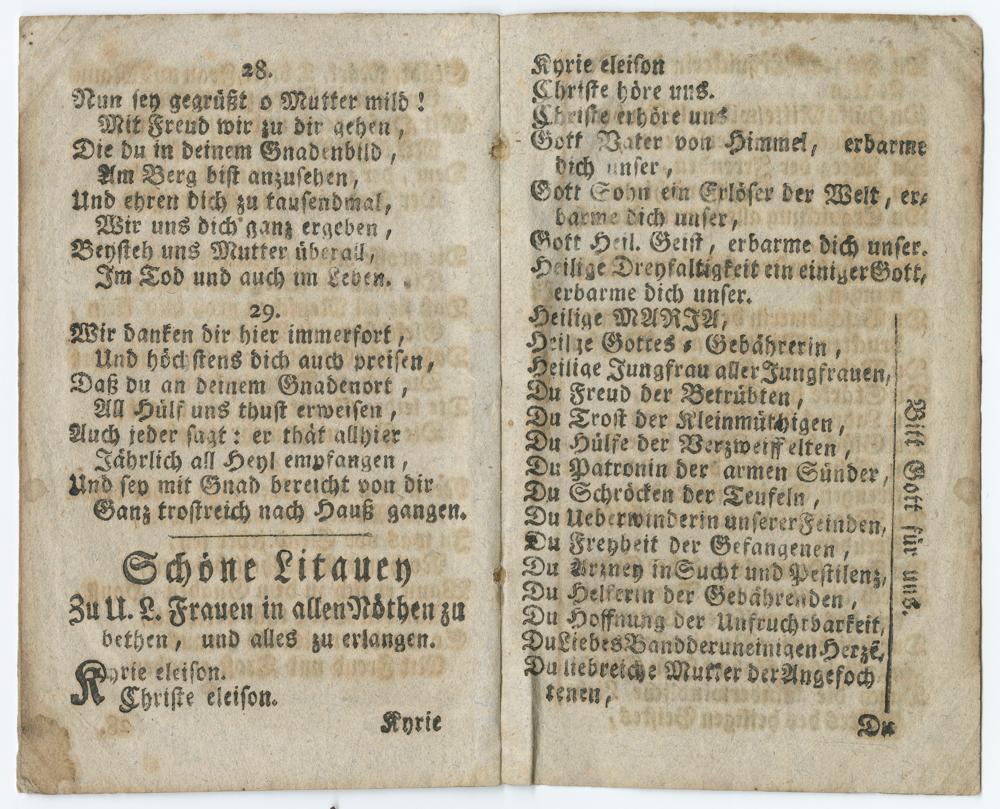 28.
Nun sey gegrüßt o Mutter mild !
Mit Freud wir zu dir gehen ,
Die du in deinem Gnadenbild ,
Am Berg bist anzusehen ,
Und ehren dich zu tausendmal,
Wir uns dich ganz ergeben ,
Beysteh uns Mutter überall,
Im Tod und auch im Leben.
29.
Wir danken dir hier immerfort ,
Und höchstens dich auch preisen,
Daß du an deinem Gnadenort ,
All Hülf uns thust erweisen ,
Auch jeder sagt : er thät allhier
Jährlich all Heyl empfangen ,
Und sey mit Gnad bereicht von dir
Ganz trostreich nach Hauß gangen.
Schöne Litauey
Zu U. L. Frauen in allen Nöthen zu
bethen , und alles zu erlangen.
Kyrie eleison.
Christe eleison.
Kyrie
Kyrie eleison
Christe höre uns.
Christe erhöre uns
Gott Vater von Himmel, erbarme
dich unser ,
Gott Sohn ein Erlöser der Welt, er=
barme dich unser,
Gott Heil. Geist, erbarme dich unser.
Heilige Dreyfaltigkeit ein einiger Gott,
erbarme dich unser.
Heilige MARJA,
Heilige Gottes = Gebährerin ,
Heilige Jungfrau aller Jungfrauen,
Du Freud der Betrübten ,
Du Trost der Kleinmüthigen ,
Du Hülfe der Verzweiffelten ,
Du Patronin der armen Sünder,
Du Schröcken der Teufeln ,
Du Ueberwinderin unserer Feinden,
Du Freyheit der Gefangenen ,
Du Arzney in Sucht und Pestilenz,
Du Helferin der Gebährenden ,
Du Hoffnung der Unfruchtbarkeit,
Du Liebes Band der uneinigen Herzē,
Du liebreiche Mutter der Angefoch
tenen ,
Bitt Gott für uns.
Du